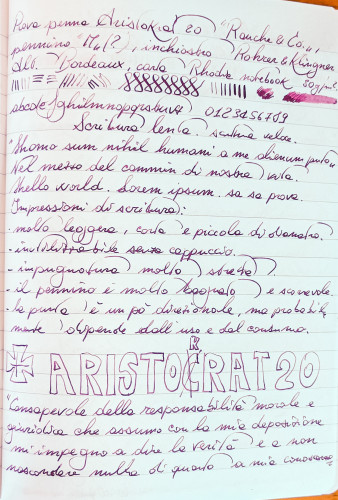 Prova penna Aristokrat 20 "Rauche & Co.",
pennino "M(?), inchiostro Rohrer & Klingner
Alt. Bordeaux, carta Rhodia notebook 80g/mq.
abcdefghilmnopqrstuvz 0123456789
Scrittura lenta scrittura veloce.
"Homo sum nihil humani a me alienum puto"
Nel mezzo del cammin di nostra vita.
hello world. Lorem ipsum. sa sa prova.
Impressioni di scrittura:
- molto leggera, corta e piccola di diametro.
- inutilizzabile senza cappuccio.
- impugnatura molto stretta.
- il pennino è molto bagnato e scorrevole.
- la punta è un pò direzionale, ma probabil
mente dipende dall'uso e dal consumo.
K
ARISTOCRAT 20
"Consapevole della responsabilità morale e
giuridica che assumo con la mia deposizione
mi impegno a dire la verità e a non
nascondere nulla di quanto a mia conoscenza